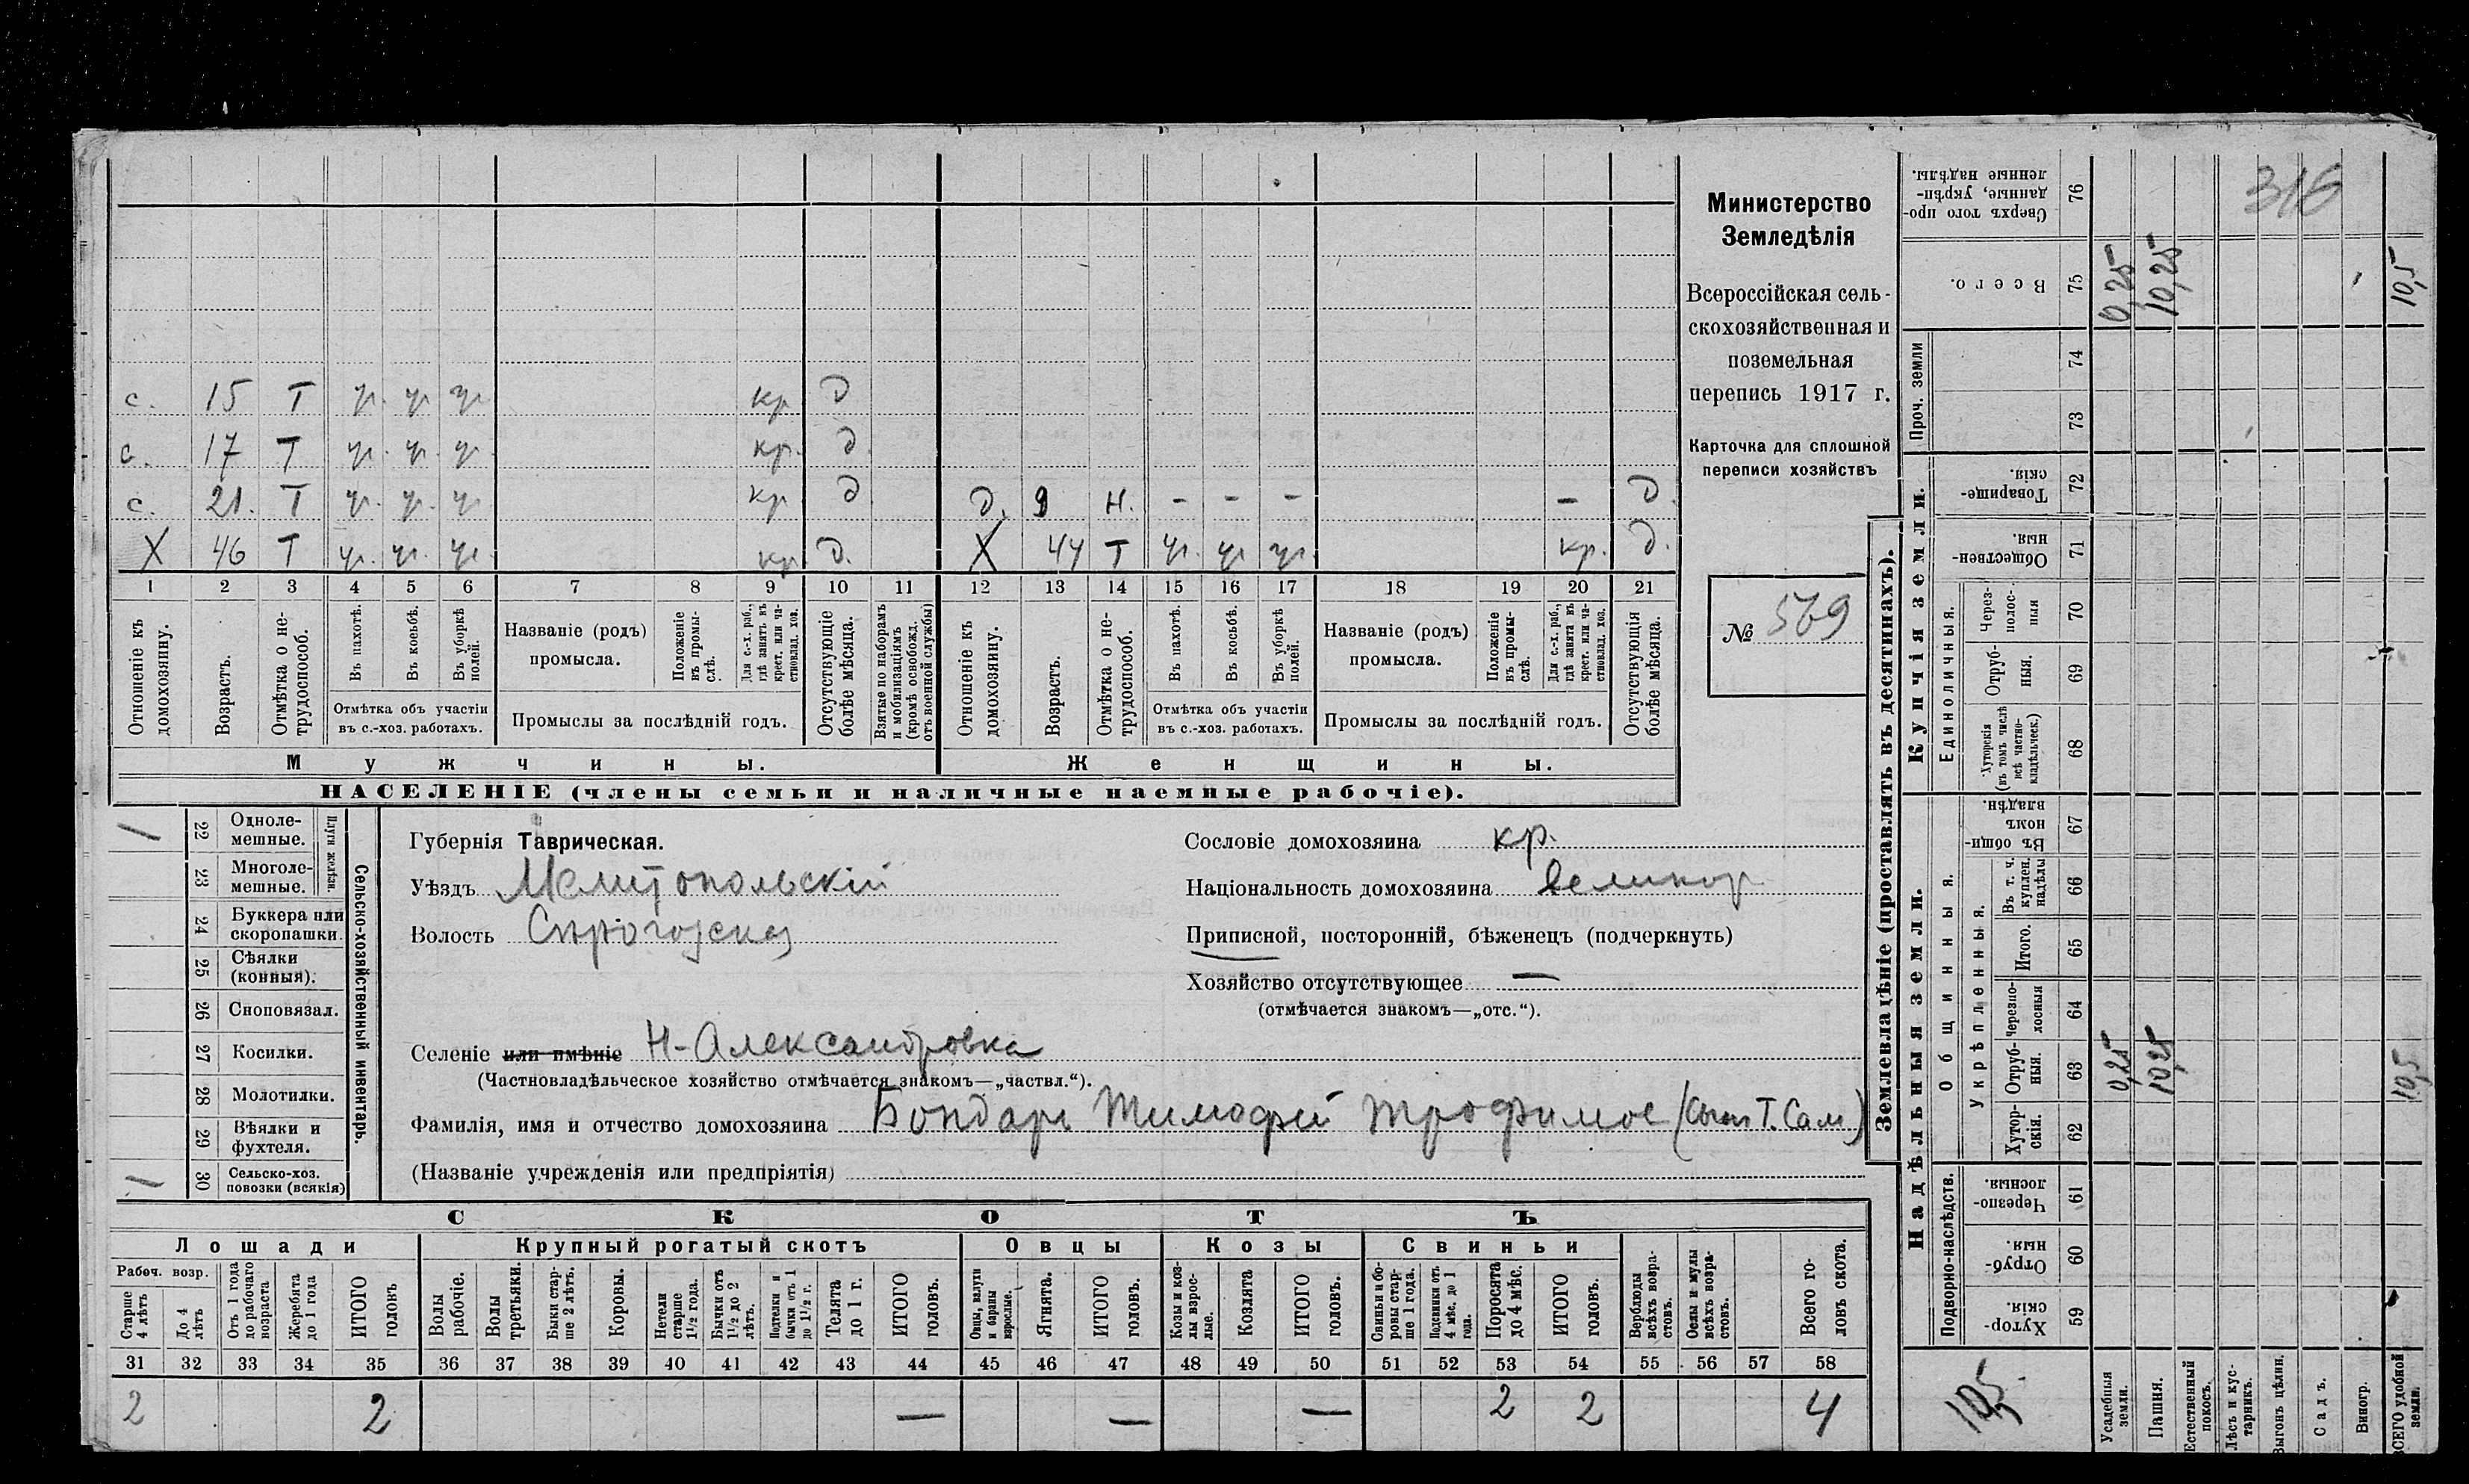 с. 15 Т ур. ур ур кр д
с. 17 Т ур. ур. ур. кр. д.
с. 21. Т ур. ур. ур кр д д. 9 н. - - - - д.
X 46 Т ур. ур. ур. кр д. X 44 Т ур. ур ур. кр. д.
1 2 3 4 5 6 7 8 9 10 11 12 13 14 15 16 17 18 19 20 21
Отношеніе къ домохозяину.
Возрастъ.
Отмѣтка о не-
трудоспособ.
Въ пахотѣ.
Въ косьбѣ.
Въ уборкѣ
полей.
Отмѣтка объ участіи
въ с.-хоз. работахъ.
Названіе (родъ)
промысла.
Положеніе
въ промы-
слѣ.
Для с.-х. раб.,
гдѣ занятъ въ
крест. или ча-
стновлад. хоз.
Промыслы за послѣдній годъ.
Отсутствующіе
болѣе мѣсяца.
Взятые по наборамъ
и мобилизаціямъ
(кромѣ освобожд.
отъ военной службы)
Отношеніе къ
домохозяину.
Возрастъ.
Отмѣтка о не-
трудоспособ.
Въ пахотѣ.
Въ косьбѣ.
Въ уборкѣ
полей.
Отмѣтка объ участіи
въ с.-хоз. работахъ.
Названіе (родъ)
промысла.
Положеніе
въ промы-
слѣ.
Для с.-х. раб.,
гдѣ занята въ
крест. или ча-
стновлад. хоз.
Промыслы за послѣдній годъ.
Отсутствующія
болѣе мѣсяца.
Мужчины. Женщины.
НАСЕЛЕНІЕ (члены семьи и наличные наемные рабочіе).
Министерство
Земледѣлія
Всероссійская сель-
скохозяйственная и
поземельная
перепись 1917 г.
Карточка для сплошной
переписи хозяйствъ
№ 569
Сельско-хозяйственный инвентарь.
Плуги желѣзн.
1 22 Одноле-
мешные.
23 Многоле-
мешные.
24 Буккера или
скоропашки.
25 Сѣялки
(конныя).
26 Сноповязал.
27 Косилки.
28 Молотилки.
29 Вѣялки и
фухтеля.
1 30 Сельско-хоз.
повозки (всякія)
Губернія Таврическая.
Уѣздъ Мелитопольскій
Волость
Селеніе или имѣніе Н-Александровка
(Частновладѣльческое хозяйство отмѣчается знакомъ—„частвл.“).
Фамилія, имя и отчество домохозяина Бондарь Тимофей Трофимов (
(Названіе учрежденія или предпріятія)
Сословіе домохозяина кр.
Національность домохозяина великор
Приписной, посторонній, бѣженецъ (подчеркнуть)
Хозяйство отсутствующее —
(отмѣчается знакомъ—„отс.“).
СКОТЪ
Лошади Крупный рогатый скотъ Овцы Козы Свиньи
Рабоч. возр.
Старше
4 лѣтъ
До 4
лѣтъ
Отъ 1 года
до рабочаго
возраста
Жеребята
до 1 года
ИТОГО
головъ
Волы
рабочіе.
Волы
третьяки.
Быки стар-
ше 2 лѣтъ.
Коровы.
Нетели
старше
1½ года.
Бычки отъ
1½ до 2
лѣтъ.
Подтелки и
бычки отъ 1
до 1½ г.
Телята
до 1 г.
ИТОГО
головъ.
Овцы, валухи
и бараны
взрослые.
Ягнята.
ИТОГО
головъ.
Козы и коз-
лы взрос-
лые.
Козлята
ИТОГО
головъ.
Свиньи и бо-
ровы стар-
ше 1 года.
Подсвинки отъ
4 мѣс. до 1
года.
Поросята
до 4 мѣс.
ИТОГО
головъ.
Верблюды
всѣхъ возра-
стовъ.
Ослы и мулы
всѣхъ возра-
стовъ.
Всего го-
ловъ скота.
31 32 33 34 35 36 37 38 39 40 41 42 43 44 45 46 47 48 49 50 51 52 53 54 55 56 57 58
2 2 — — — 2 2 4
Землевладѣніе (проставлять въ десятинахъ).
Надѣльныя земли. Купчія земли.
Проч. земли
Подворно-наслѣдств.
Общинныя.
Укрѣпленныя.
Единоличныя.
316
Сверхъ того про-
данные, укрѣп-
ленные надѣлы. 76
Всего. 75 0,25 10,25 10,5
74
73
Товарище-
скія. 72
Обществен-
ныя. 71
Через-
полос-
ныя 70
Отруб-
ныя. 69
Хуторскія
(въ томъ числѣ
всѣ частно-
владѣльческ.) 68
Въ общи-
номъ
владѣн. 67
Въ т. ч.
куплен.
надѣлы 66
Итого. 65
Черезпо-
лосныя 64
Отруб-
ныя. 63 0,25 10,25 10,5
Хутор-
скія. 62
Черезпо-
лосныя. 61
Отруб-
ныя. 60
Хутор-
скія. 59
10,5
Усадебныя
земли.
Пашня.
Естественный
покосъ.
Лѣсъ и кус-
тарникъ.
Выгонъ цѣлин.
Садъ.
Виногр.
ВСЕГО удобной
земли.